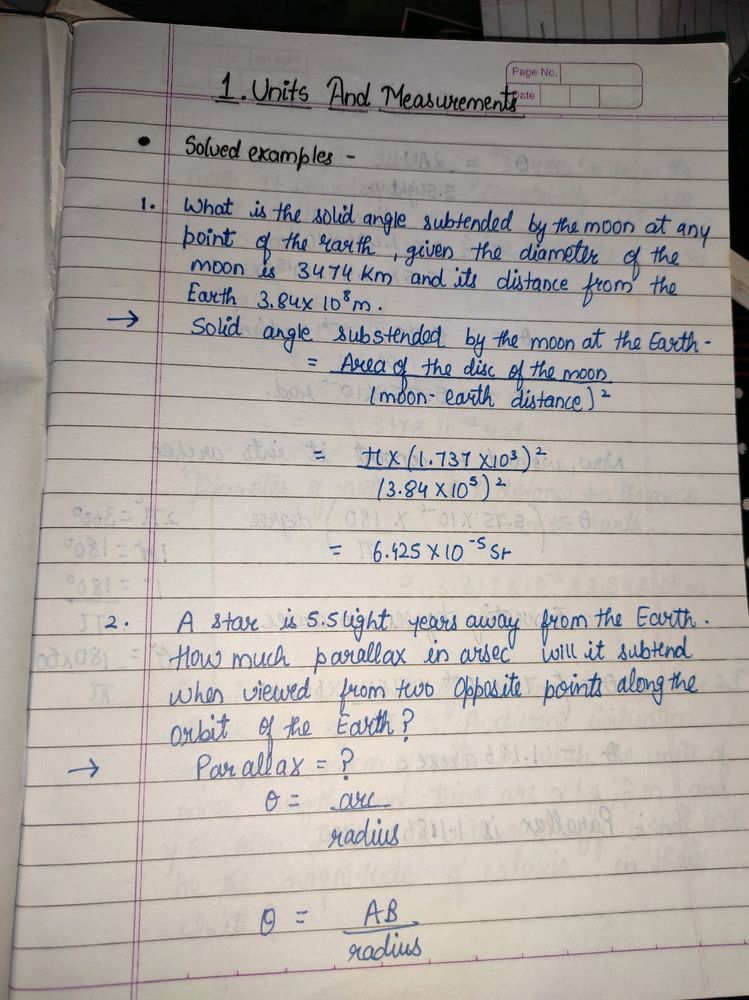 Page No.
Date
1. Units And Measurements
• Solved examples -
1. What is the solid angle subtended by the moon at any
point of the rarth, given the diameter of the
moon is 3474 Km and its distance from the
Earth 3.84 x 10⁸ m.
→ Solid angle substended by the moon at the Earth -
= Area of the disc of the moon
(moon - earth distance)²
= π x (1.737 x 10³)²
(3.84 x 10⁵)²
= 6.425 x 10⁻⁵ Sr
2. A star is 5.5 light years away from the Earth.
How much parallax in arsec will it subtend
when viewed from two opposite points along the
orbit of the Earth?
→ Parallax = ?
θ = arc
radius
θ = AB
radius